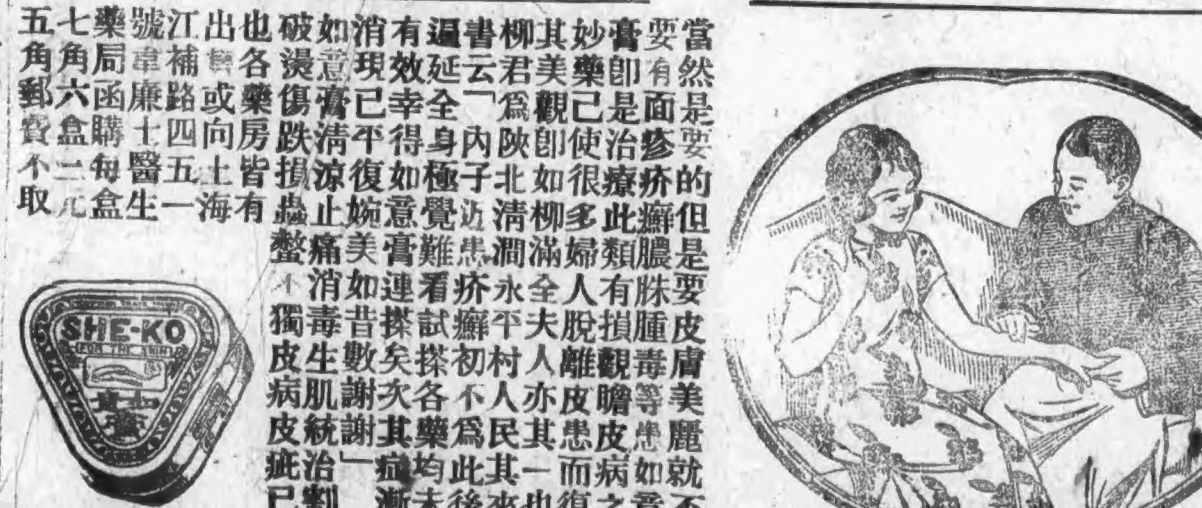 當然是要的但是要皮膚美麗就不
要有面疹疥癬膿胅腫毒等患如意
膏卽是治療此類有損觀瞻皮病之
妙藥己使很多婦人脫離皮患而復
其美觀卽如柳滿全夫人亦其一也
柳君爲陝北清澗永平村人民其來
書云「內子近患疥癬初不爲此後
遍延全身極覺難看試搽各藥均未
有效幸得如意膏連搽矣次其症漸
消現已平復婉美如昔數謝謝」
如意膏清涼止痛消毒生肌統治割
破燙傷跌損蟲螫不獨皮病皮疵已
也各藥房皆有
出售或向上海
江補路四五一
號韋廉士醫生
藥局函購每盒
七角六盒二元
五角郵費不取
SHE-KO
FOR THE SKIN